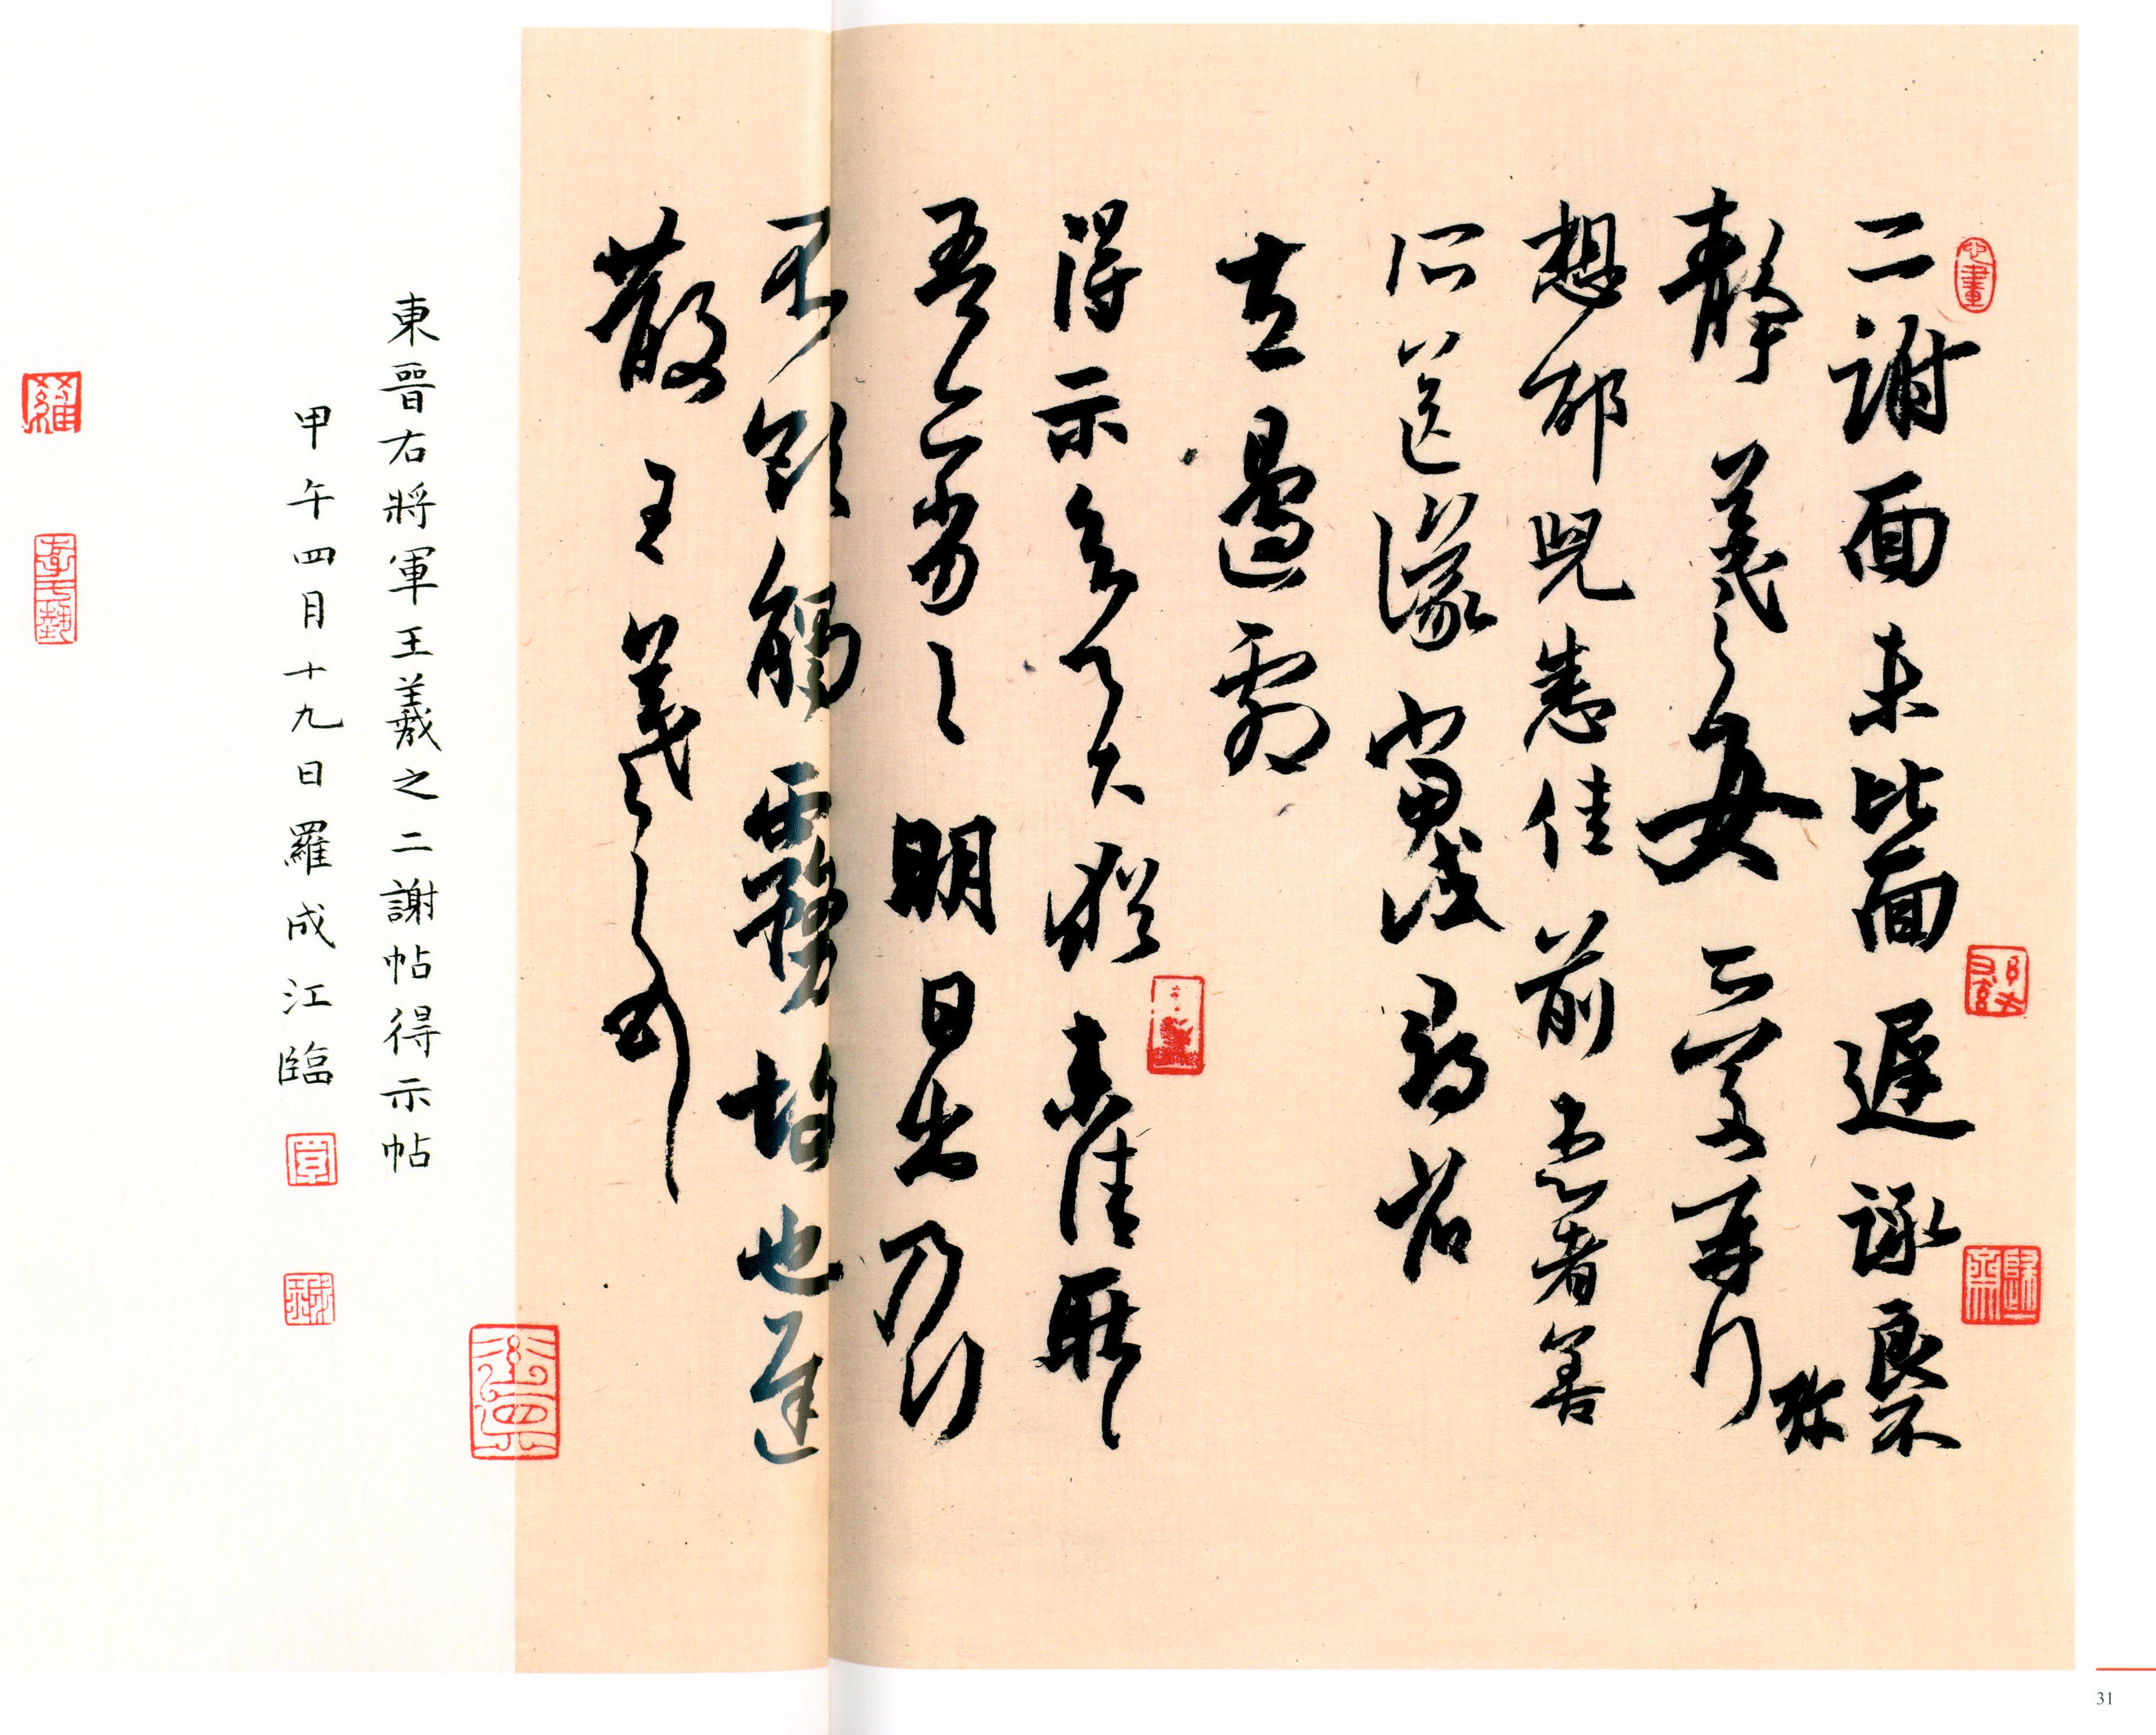 二謝面未比面遲詠良不
靜羲之女愛再拜
想邰兒悉佳前患者善
所送議當試尋省
左邊劇
得示知足下猶未佳耿耿
吾亦劣劣明日出乃行
不欲觸霧故也遲
散王羲之頓首
東晉右將軍王羲之二謝帖得示帖
甲午四月十九日羅成江臨
31